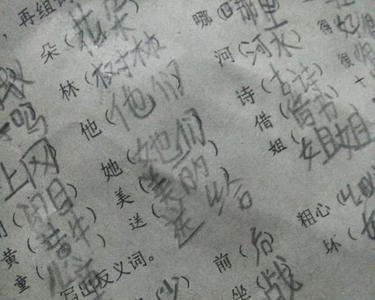 再组词
朵(花朵) 哪(哪里)
林(树林) 河(河水)
他(他们) 诗(古诗)
她(她们) 借(借书)
美(美丽) 姐(姐姐)
送(送给) 粗心(
吗
上网
黄(黄牛)
童(儿童)
写出反义词。
前(后) 坏(
少) 坐(战